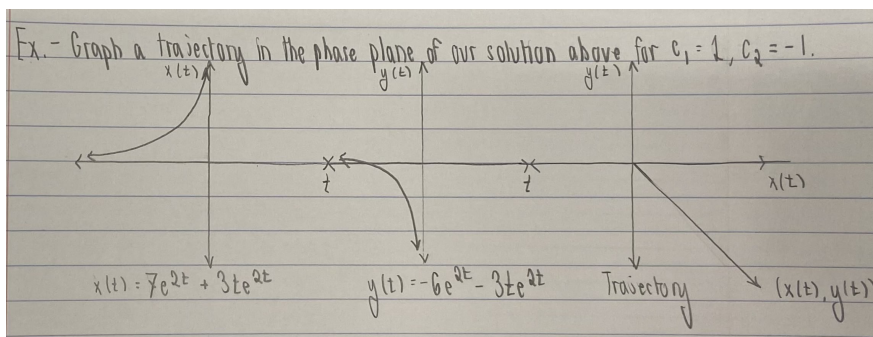 Ex.- Graph a trajectory in the phase plane of our solution above for c₁ = 1, c₂ = -1.
x(t) y(t) y(t)
t t x(t)
x(t) = 7e^2t + 3te^2t y(t) = -6e^2t - 3te^2t Trajectory (x(t), y(t)